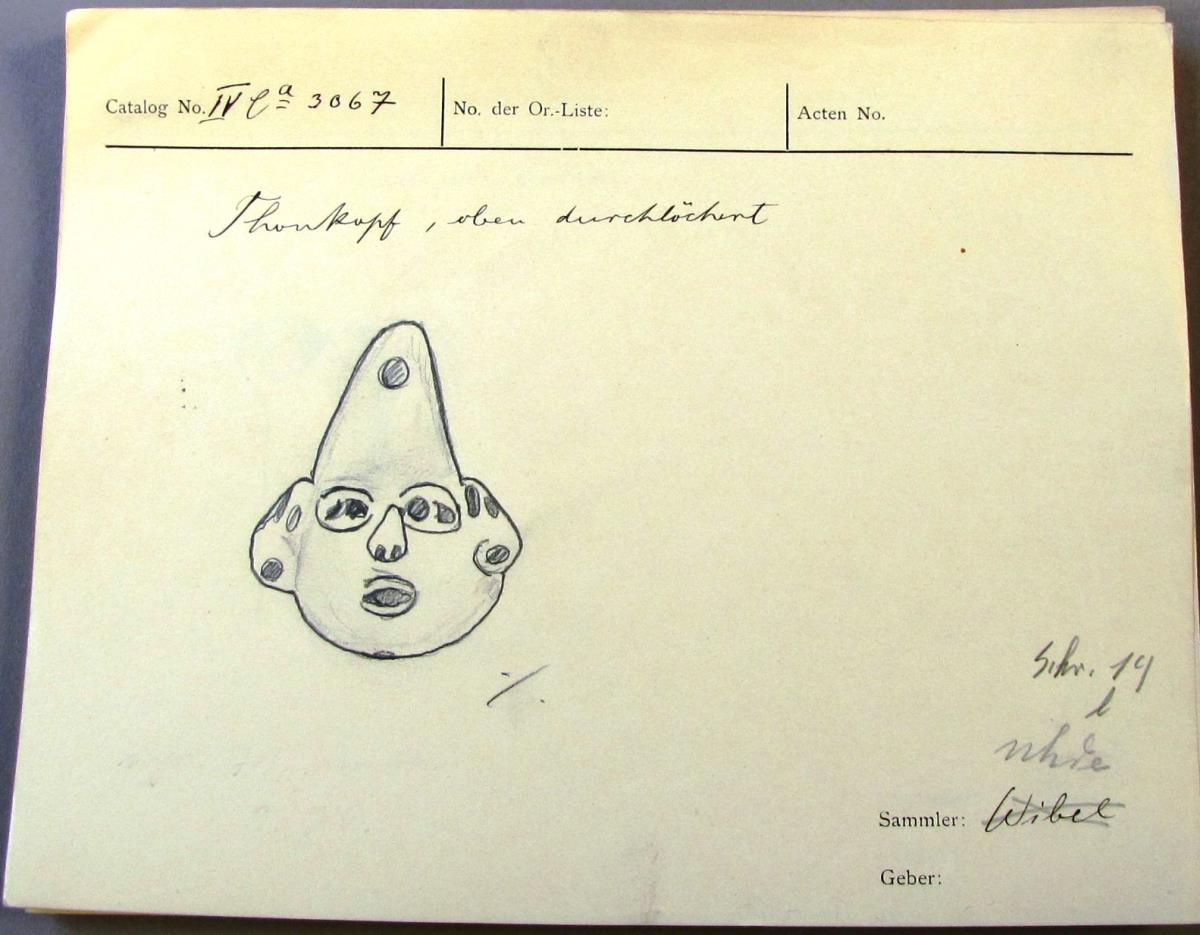 Catalog No. IV Ca 3067 No. der Or.-Liste: Acten No.
Thonkopf, oben durchlöchert
Schr. 19
l
Uhde
Sammler: Wibel
Geber: